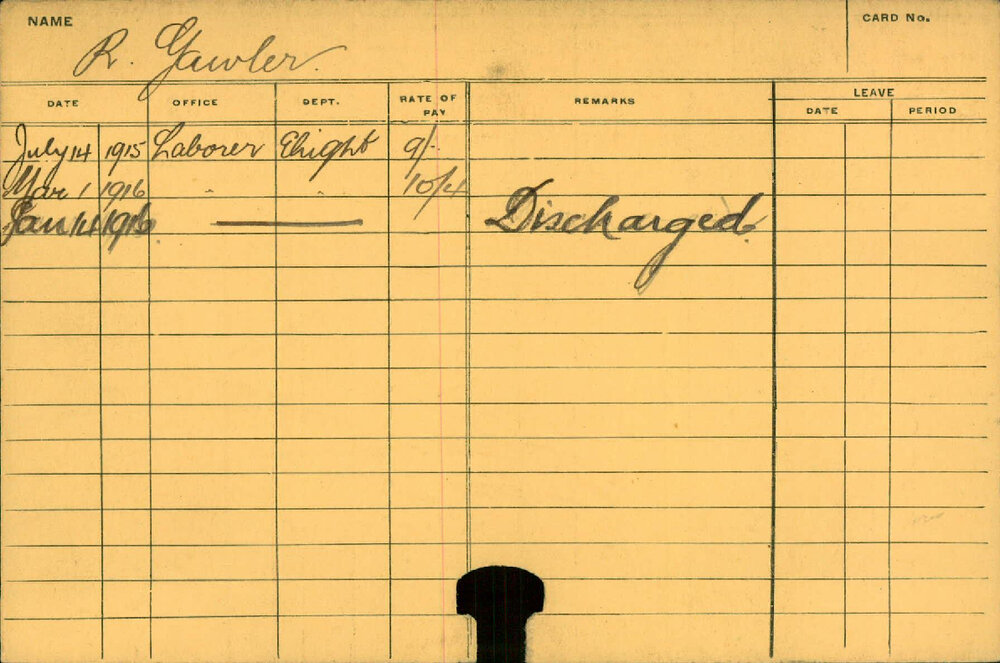 NAME
R. Gawler.
CARD No.
DATE OFFICE DEPT. RATE OF PAY REMARKS LEAVE
DATE PERIOD
July 14 1915 Laborer Elight 9/-
Mar 1 1916 " " 10/4
Jan 14 1916 Discharged